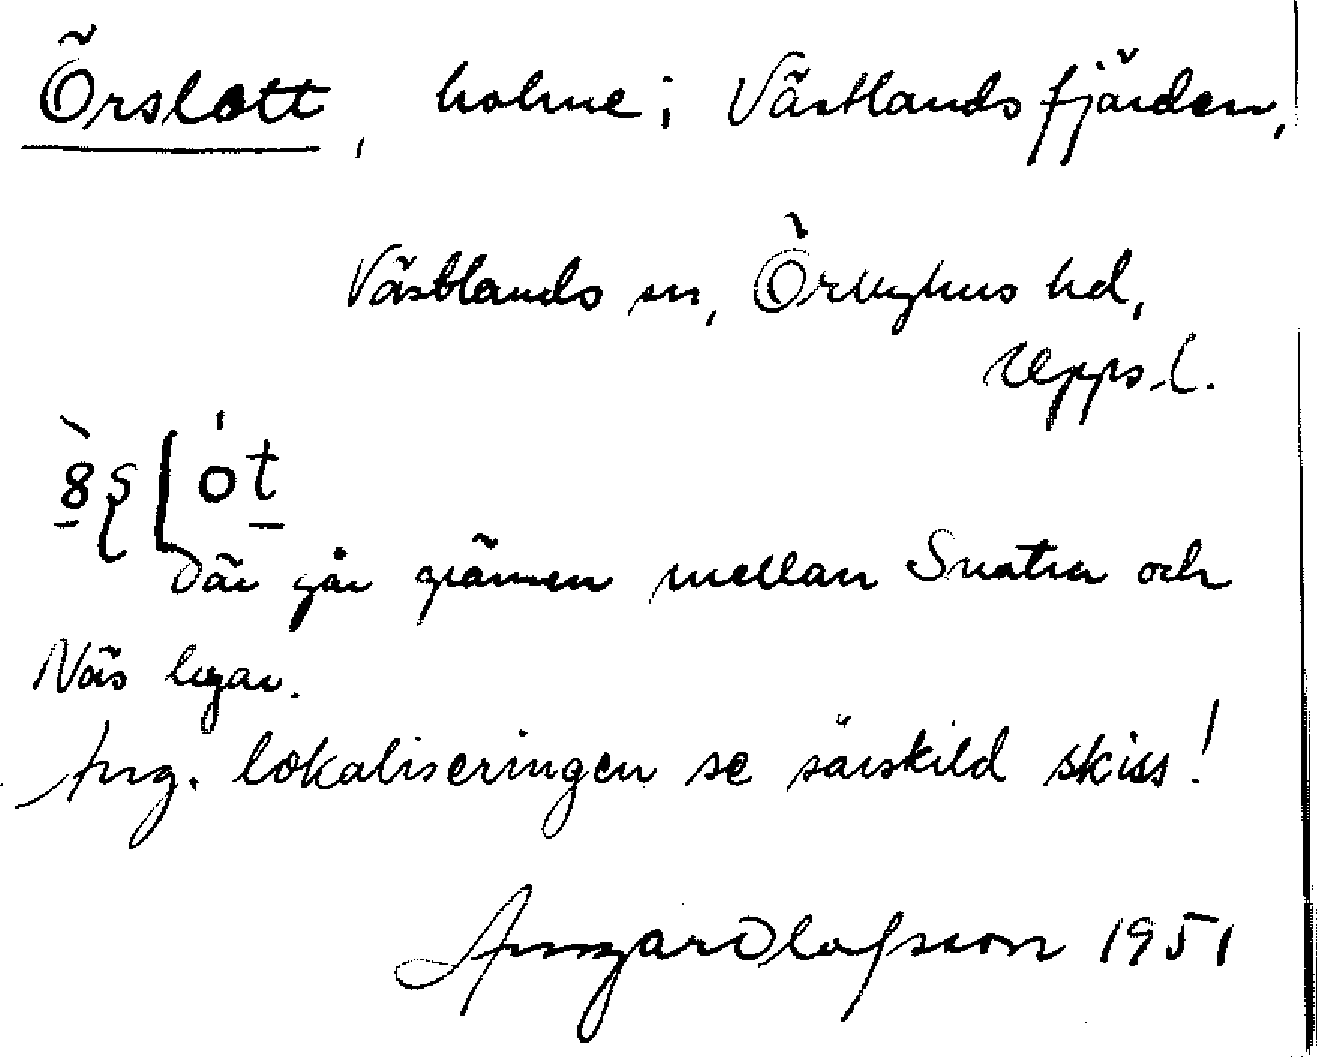 Örslott, holme i Västlandsfjärden,
Västlands sn, Örbyhus hd,
Upps. l.
Där går gränsen mellan Snatra och
Näs ligar.
Ang. lokaliseringen se särskild skiss!
Olofsson 1951